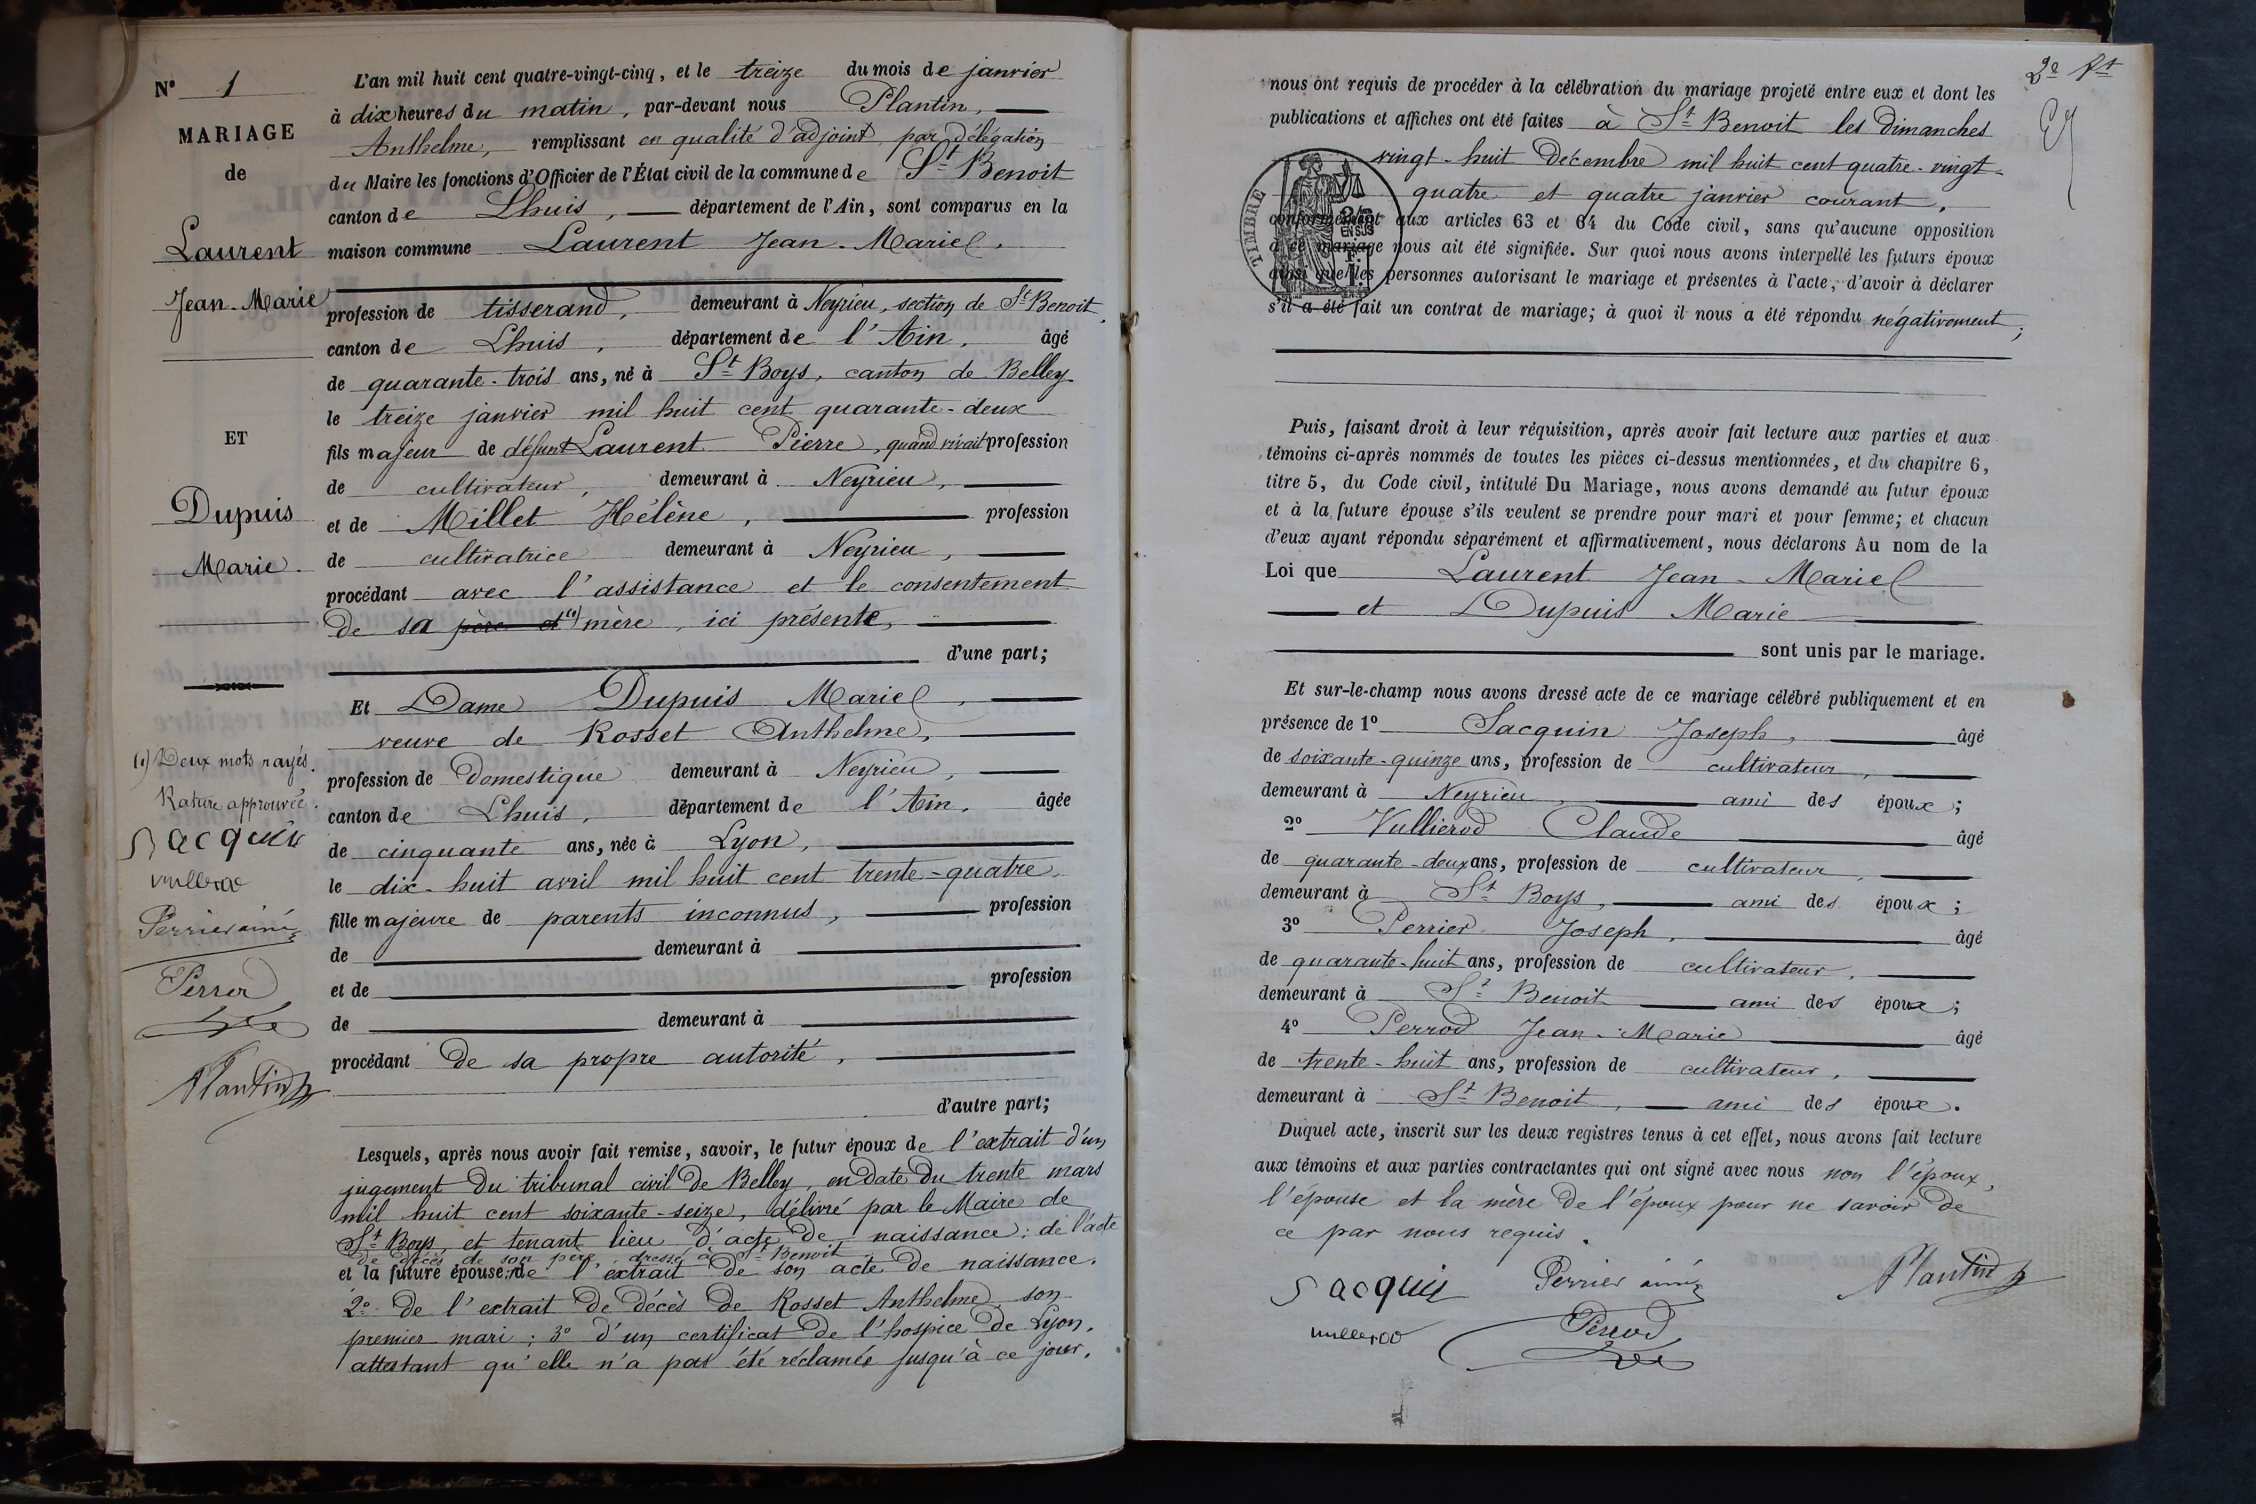 N° 1
MARIAGE
de
Laurent
Jean-Marie
ET
Dupuis
Marie
(1) Deux mots rayés.
Rature approuvée.
Sacquin
vullerod
Perrier ainé
Perrod
Plantin
L'an mil huit cent quatre-vingt-cinq, et le treize du mois de janvier
à dix heures du matin, par-devant nous Plantin,
Anthelme, remplissant en qualité d'adjoint par délégation
du Maire les fonctions d'Officier de l'État civil de la commune de St Benoit
canton de Lhuis, département de l'Ain, sont comparus en la
maison commune Laurent Jean-Marie,
profession de tisserand, demeurant à Neyrieu, section de St Benoit,
canton de Lhuis, département de l'Ain, âgé
de quarante-trois ans, né à St Boys, canton de Belley
le treize janvier mil huit cent quarante-deux
fils majeur de défunt Laurent Pierre, quand vivait profession
de cultivateur, demeurant à Neyrieu,
et de Millet Hélène, profession
de cultivatrice demeurant à Neyrieu,
procédant avec l'assistance et le consentement
de sa père et (1) mère, ici présente,
d'une part;
Et Dame Dupuis Marie,
veuve de Rosset Anthelme,
profession de Domestique demeurant à Neyrieu,
canton de Lhuis, département de l'Ain, âgée
de cinquante ans, née à Lyon,
le dix-huit avril mil huit cent trente-quatre,
fille majeure de parents inconnus, profession
de demeurant à
et de profession
de demeurant à
procédant de sa propre autorité,
d'autre part;
Lesquels, après nous avoir fait remise, savoir, le futur époux de l'extrait d'un
jugement du tribunal civil de Belley, en date du trente mars
mil huit cent soixante-seize, délivré par le Maire de
St Boys et tenant lieu d'acte de naissance; de l'acte
de décès de son père, dressé à St Benoit
et la future épouse: de l'extrait de son acte de naissance.
2° de l'extrait de décès de Rosset Anthelme, son
premier mari; 3° d'un certificat de l'hospice de Lyon,
attestant qu'elle n'a pas été réclamée jusqu'à ce jour,
2e Rt
nous ont requis de procéder à la célébration du mariage projeté entre eux et dont les
publications et affiches ont été faites à St Benoit les dimanches
vingt-huit décembre mil huit cent quatre-vingt-
quatre et quatre janvier courant,
TIMBRE
2/10 EN SUS
conformément aux articles 63 et 64 du Code civil, sans qu'aucune opposition
à ce mariage nous ait été signifiée. Sur quoi nous avons interpellé les futurs époux
ainsi que les personnes autorisant le mariage et présentes à l'acte, d'avoir à déclarer
s'il a été fait un contrat de mariage; à quoi il nous a été répondu négativement;
Puis, faisant droit à leur réquisition, après avoir fait lecture aux parties et aux
témoins ci-après nommés de toutes les pièces ci-dessus mentionnées, et du chapitre 6,
titre 5, du Code civil, intitulé Du Mariage, nous avons demandé au futur époux
et à la future épouse s'ils veulent se prendre pour mari et pour femme; et chacun
d'eux ayant répondu séparément et affirmativement, nous déclarons Au nom de la
Loi que Laurent Jean-Marie
et Dupuis Marie
sont unis par le mariage.
Et sur-le-champ nous avons dressé acte de ce mariage célébré publiquement et en
présence de 1° Sacquin Joseph, âgé
de soixante-quinze ans, profession de cultivateur,
demeurant à Neyrieu, ami des époux;
2° Vullierod Claude âgé
de quarante-deux ans, profession de cultivateur,
demeurant à St Boys, ami des époux;
3° Perrier Joseph, âgé
de quarante-huit ans, profession de cultivateur,
demeurant à St Benoit ami des époux;
4° Perrod Jean-Marie âgé
de trente-huit ans, profession de cultivateur,
demeurant à St Benoit, ami des époux.
Duquel acte, inscrit sur les deux registres tenus à cet effet, nous avons fait lecture
aux témoins et aux parties contractantes qui ont signé avec nous non l'époux,
l'épouse et la mère de l'époux pour ne savoir de
ce par nous requis.
Sacquin Perrier ainé Plantin
vullerod Perrod